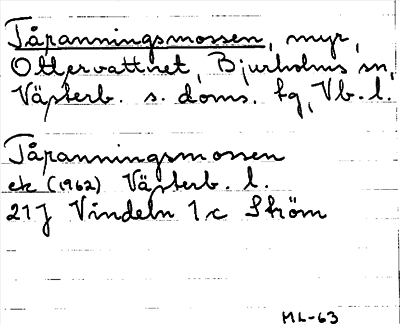 Tåpanningsmossen, myr,
Ottervattnet, Bjurholms sn,
Västerb. s. doms. tg, Vb. l.
Tåpanningsmossen
ek (1962) Västerb. l.
21J Vindeln 1c Ström
ML-63